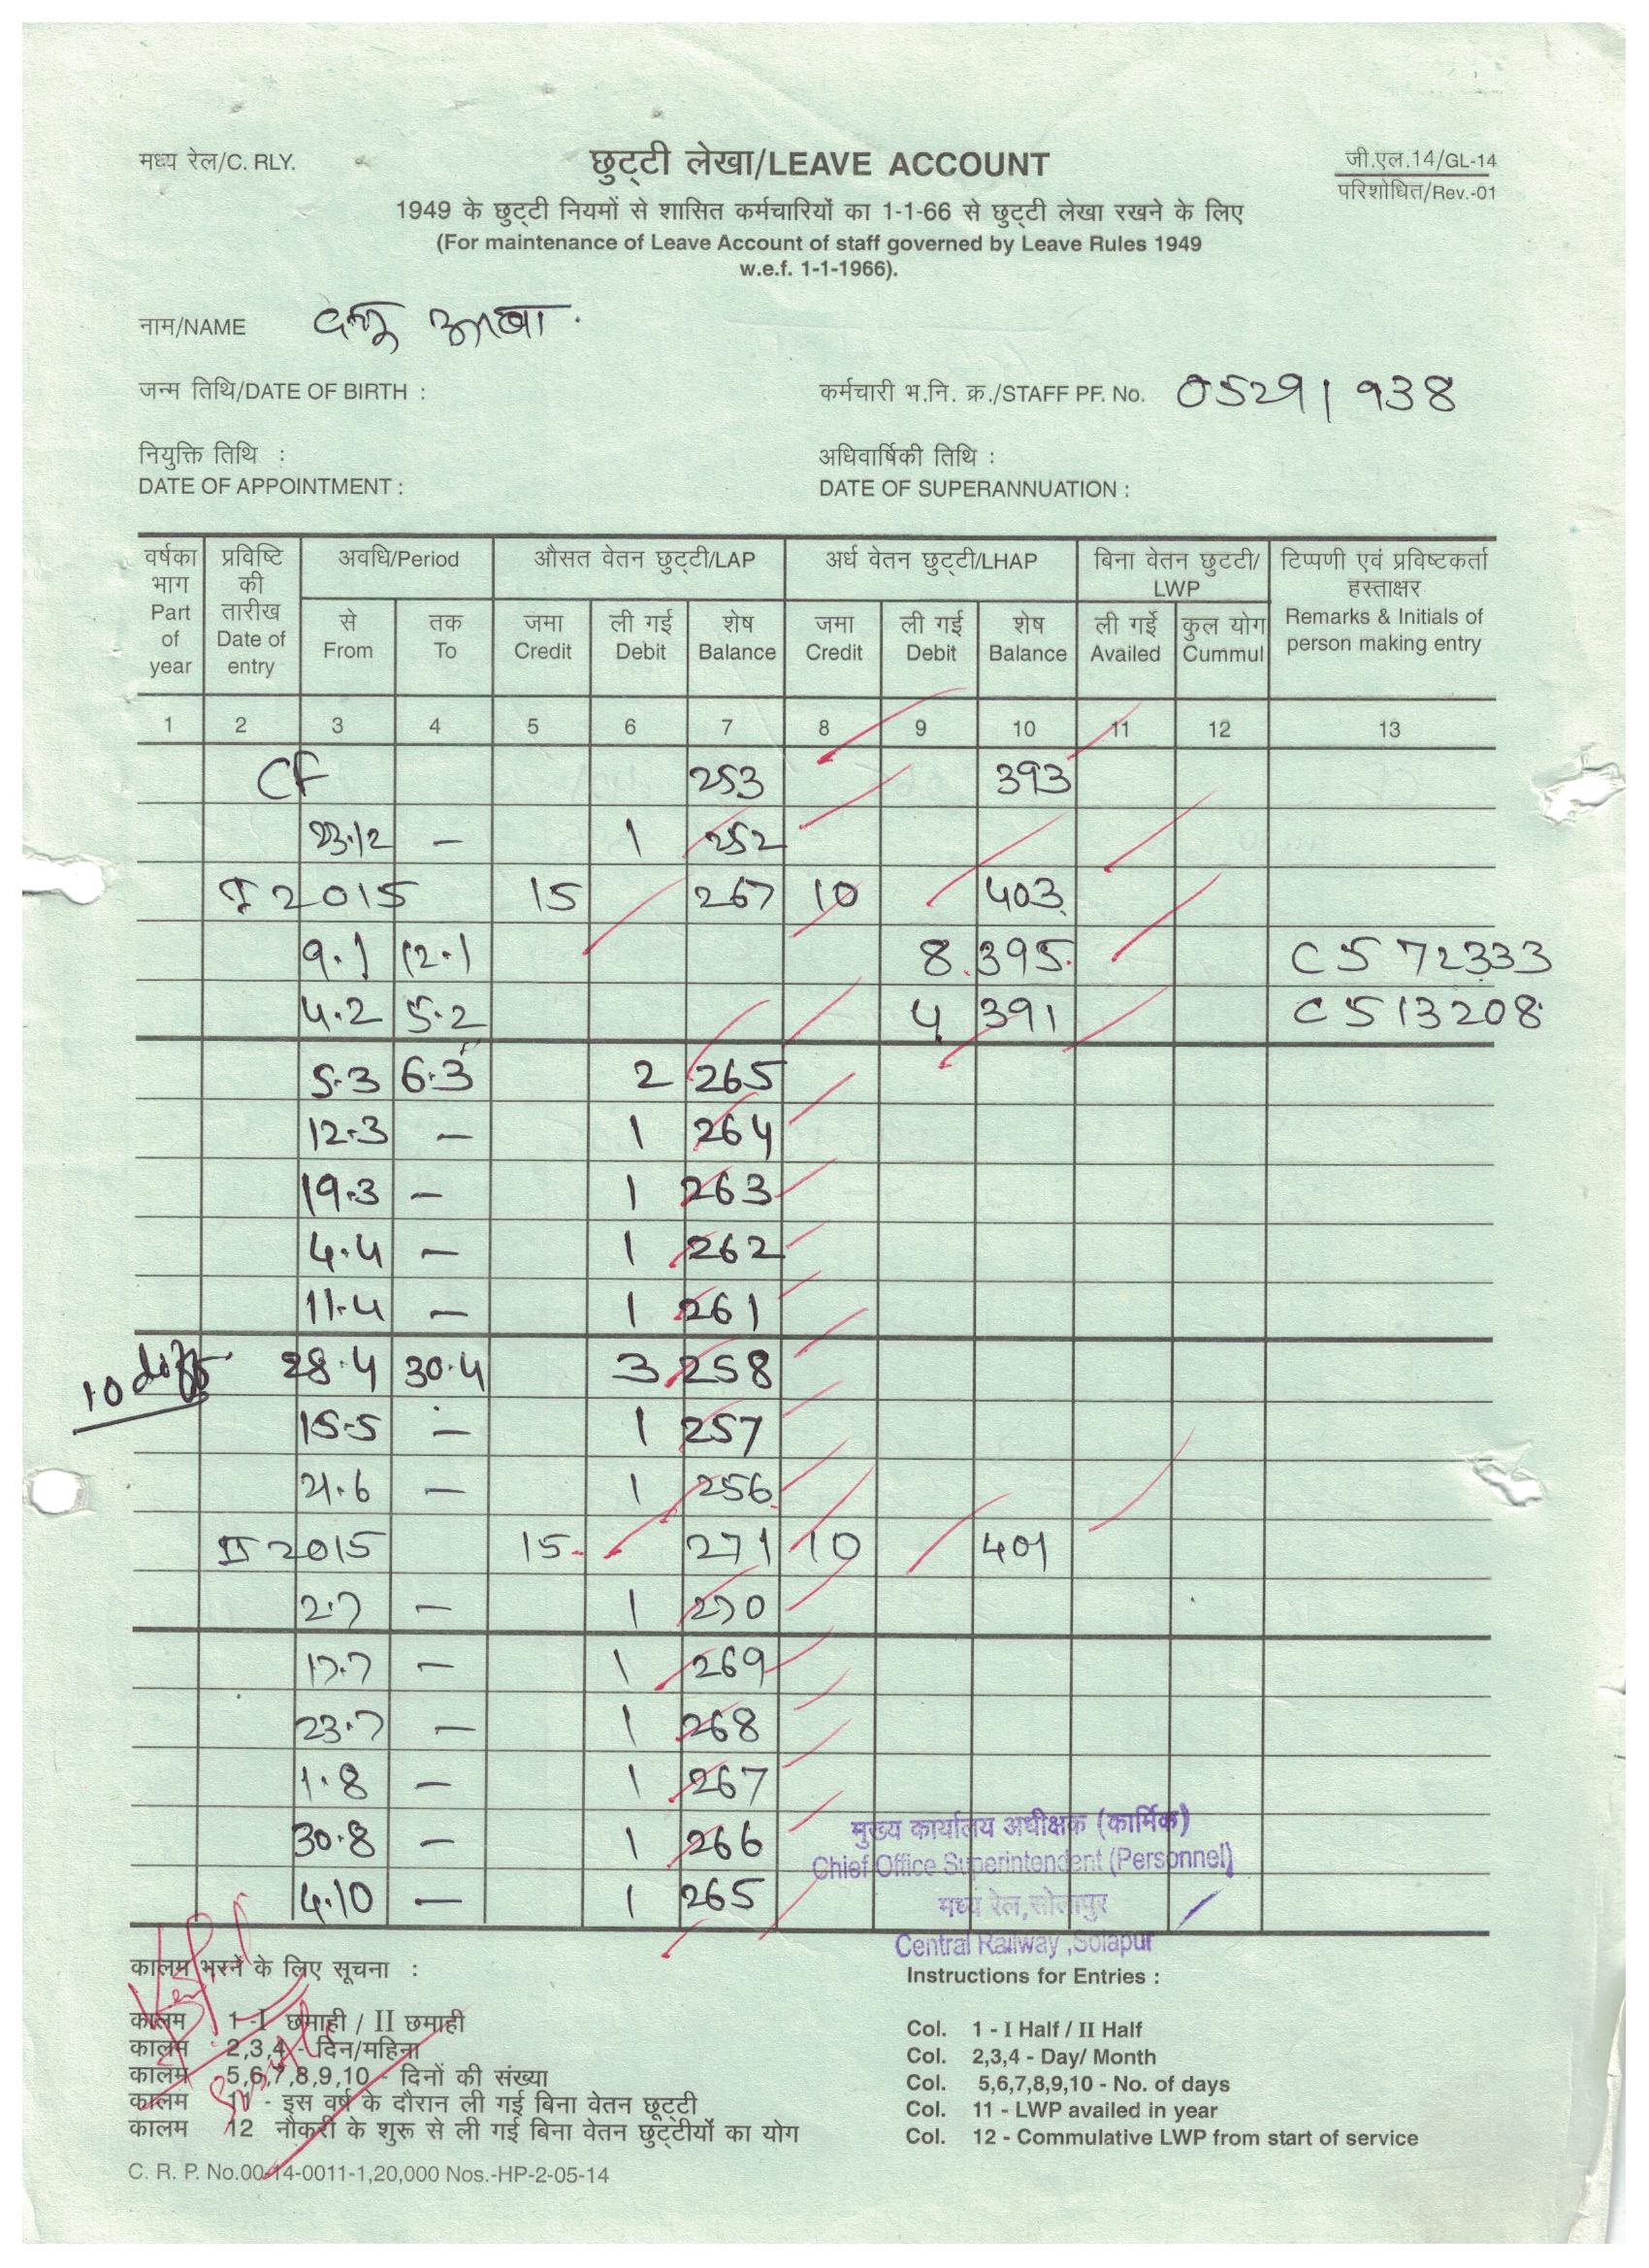 मध्य रेल/C. RLY.
छुट्टी लेखा/LEAVE ACCOUNT
जी.एल.14/GL-14
परिशोधित/Rev.-01
1949 के छुट्टी नियमों से शासित कर्मचारियों का 1-1-66 से छुट्टी लेखा रखने के लिए
(For maintenance of Leave Account of staff governed by Leave Rules 1949
w.e.f. 1-1-1966).
नाम/NAME
जन्म तिथि/DATE OF BIRTH :
कर्मचारी भ.नि. क्र./STAFF PF. No. 05291938
नियुक्ति तिथि :
DATE OF APPOINTMENT :
अधिवार्षिकी तिथि :
DATE OF SUPERANNUATION :
वर्षका भाग Part of year
प्रविष्टि की तारीख Date of entry
अवधि/Period
औसत वेतन छुट्टी/LAP
अर्ध वेतन छुट्टी/LHAP
बिना वेतन छुटटी/ LWP
टिप्पणी एवं प्रविष्टकर्ता हस्ताक्षर Remarks & Initials of person making entry
से From
तक To
जमा Credit
ली गई Debit
शेष Balance
जमा Credit
ली गई Debit
शेष Balance
ली गई Availed
कुल योग Cummul
1 2 3 4 5 6 7 8 9 10 11 12 13
CF 253 393
23.12 — 1 252
I 2015 15 267 10 403
9.1 12.1 8 395 C572333
4.2 5.2 4 391 C513208
5.3 6.3 2 265
12.3 — 1 264
19.3 — 1 263
4.4 — 1 262
11.4 — 1 261
10 diff 28.4 30.4 3 258
15.5 — 1 257
21.6 — 1 256
II 2015 15 271 10 401
2.7 — 1 270
17.7 — 1 269
23.7 — 1 268
1.8 — 1 267
30.8 — 1 266
4.10 — 1 265
मुख्य कार्यालय अधीक्षक (कार्मिक)
Chief Office Superintendent (Personnel)
मध्य रेल,सोलापुर
Central Railway ,Solapur
कालम भरने के लिए सूचना :
कालम 1-I छमाही / II छमाही
कालम 2,3,4 - दिन/महिना
कालम 5,6,7,8,9,10 - दिनों की संख्या
कालम 11 - इस वर्ष के दौरान ली गई बिना वेतन छूट्टी
कालम 12 नौकरी के शुरू से ली गई बिना वेतन छुट्टीयों का योग
Instructions for Entries :
Col. 1 - I Half / II Half
Col. 2,3,4 - Day/ Month
Col. 5,6,7,8,9,10 - No. of days
Col. 11 - LWP availed in year
Col. 12 - Commulative LWP from start of service
C. R. P. No.00-14-0011-1,20,000 Nos.-HP-2-05-14